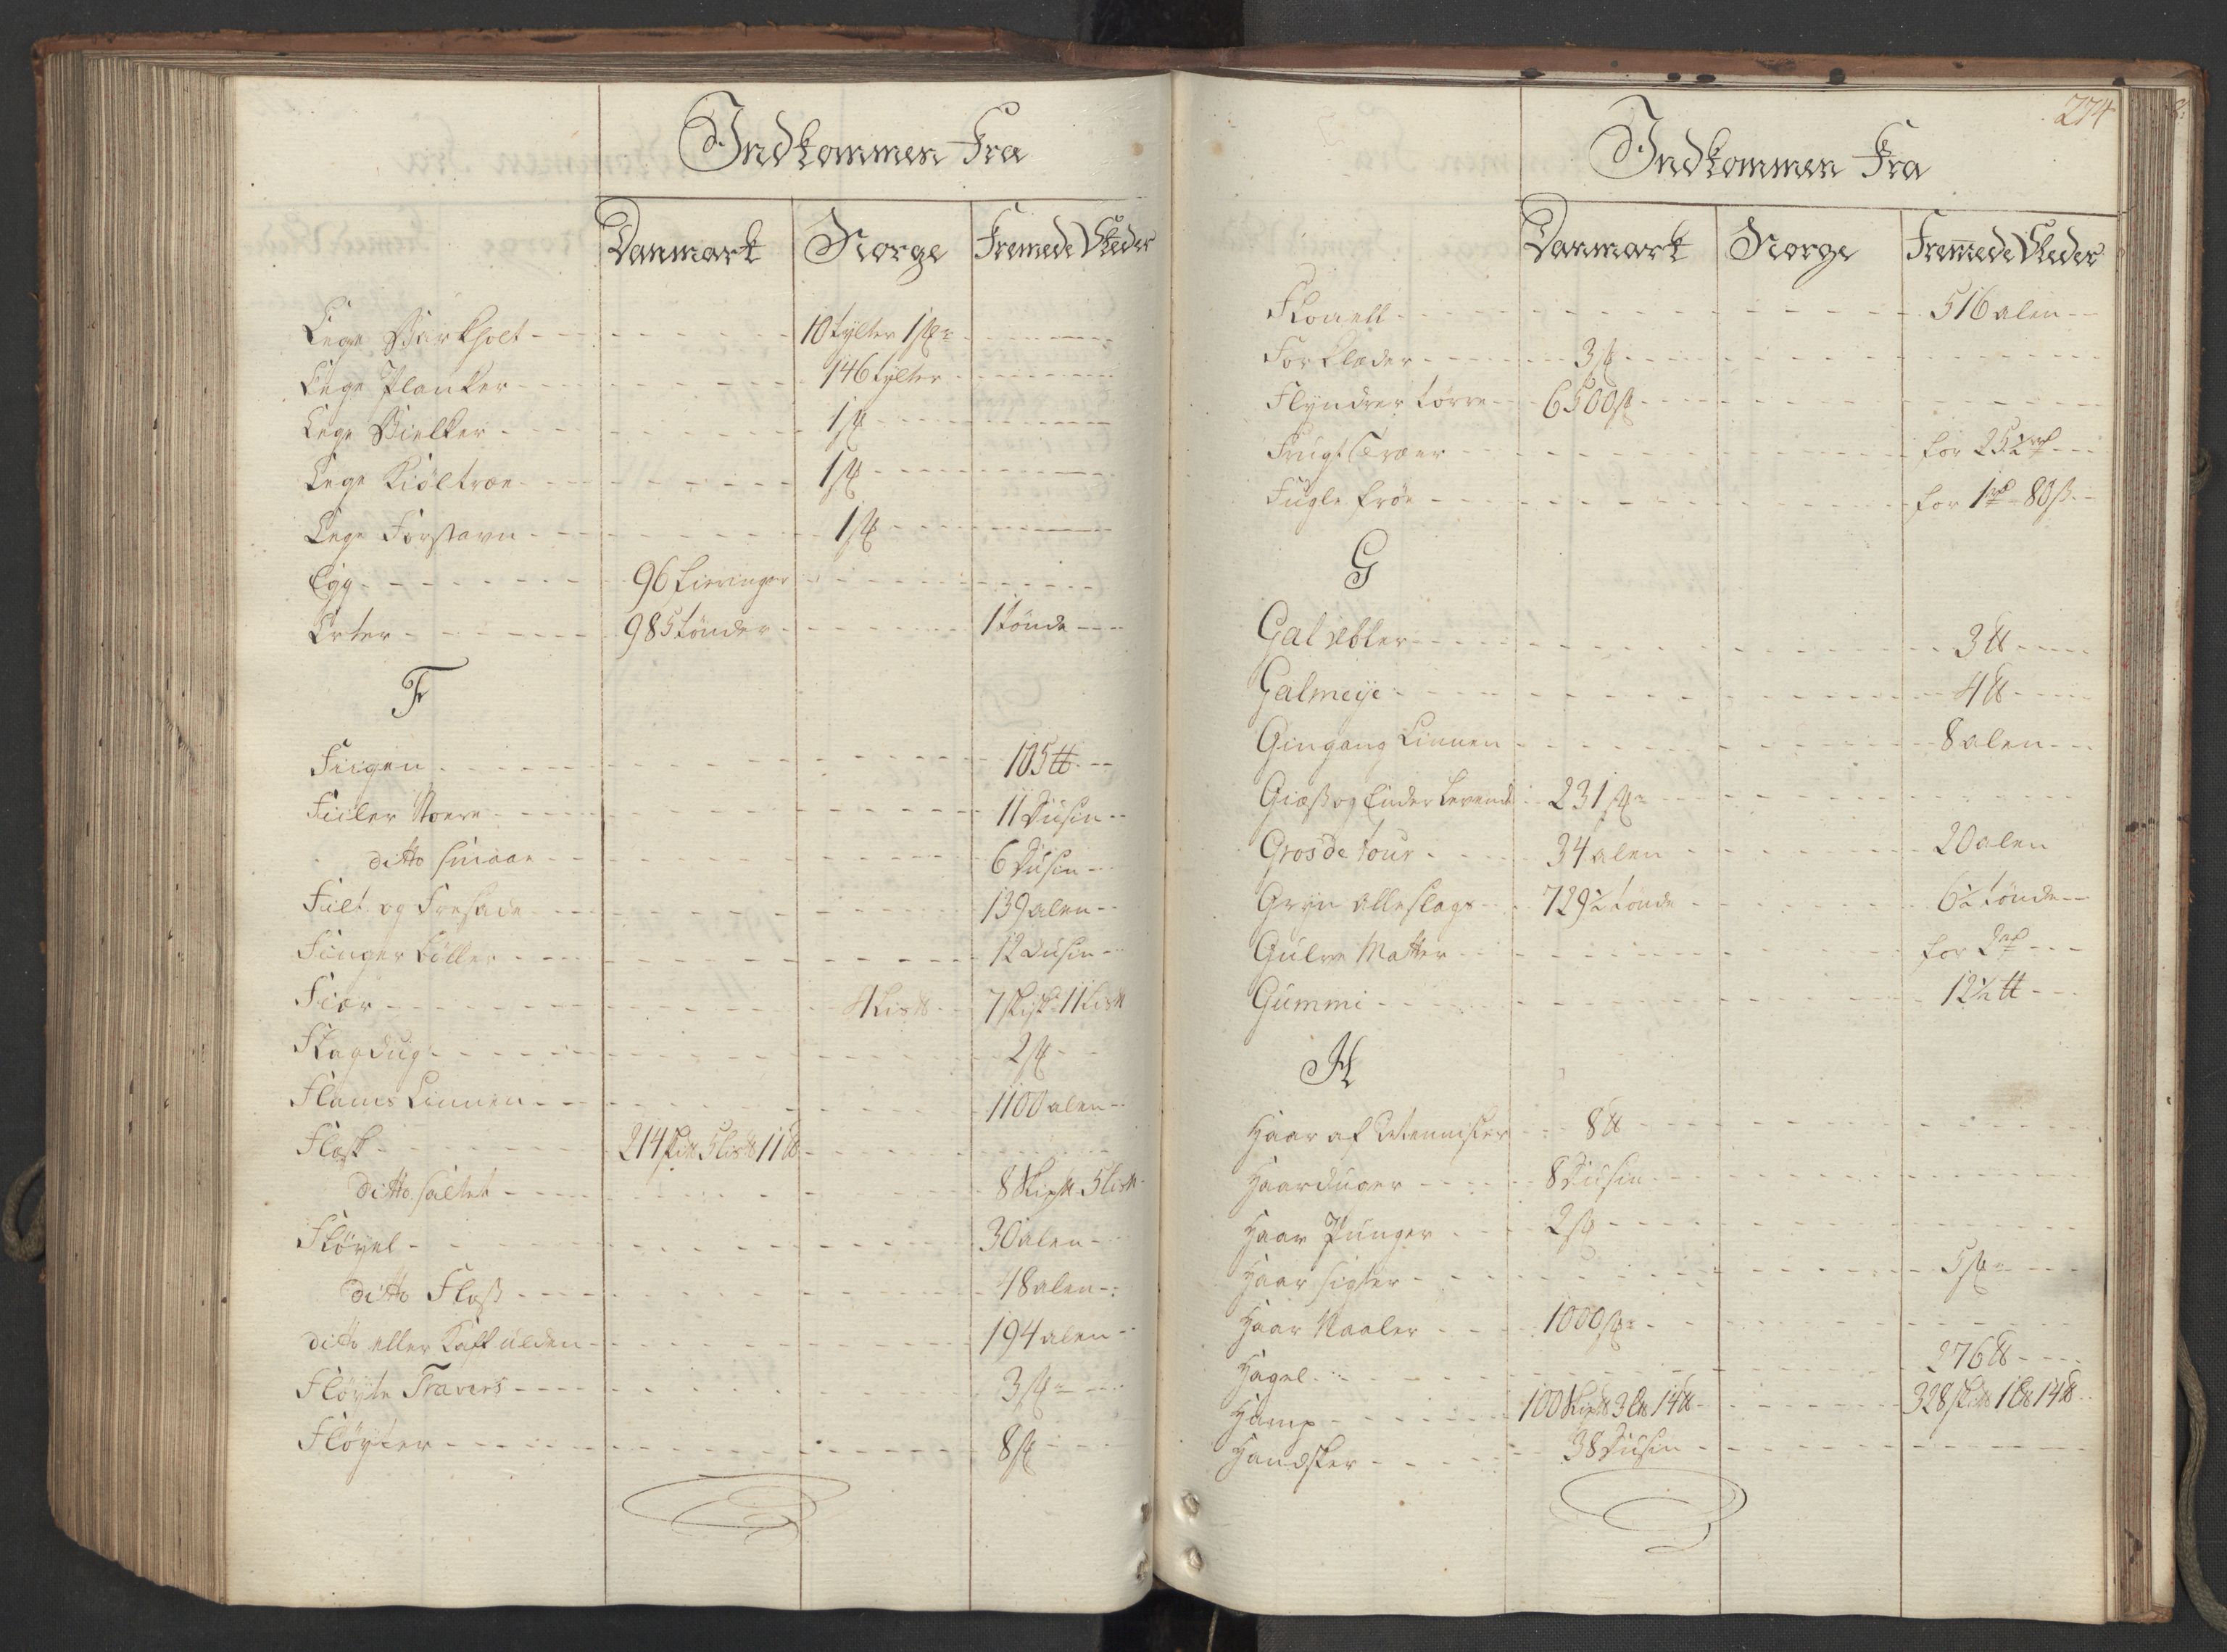 Indkommen Fra
Danmark Norge Fremede Steder
Eege Barkholt 10 tylter 1 st:
Eege Planker 146 tylter
Eege Bielker 1 st
Eege Kiöltræe 1 st
Eege Forstavn 1 st
Egg 96 Snese
Erter 985 tönder 1 tönde
F
Fiigen 105 ℔
Fiiler Stoere 11 Dusin
ditto smaae 6 Dusin
Filt og Fresade 139 alen
Finger böller 12 Dusin
Fiær 4 Lis℔ 7 Skip℔ 11 Lis℔
Flagdug 2 st
Flams Linnen 1100 alen
Flæsk 214 Sk℔ 5 Lis℔ 11 ℔
ditto saltet 8 Skip℔ 5 Lis℔
Flöyel 30 alen
ditto Flos 48 alen
ditto eller Kaff ulden 194 alen
Flöyte Travers 3 st:
Flöyter 8 st
274
Indkommen Fra
Danmark Norge Fremede Steder
Flonell 516 alen
Forklæder 3 st
Flyndrer törre 6500 st
Frugt Træer for 252 rd
Fugle fröe for 1 rd 80 ß
G
Gal Æbler 3 ℔
Galmeije 4 ℔
Gingang Linnen 8 alen
Giæß og Ender levende 231 st:
Gros de tour 34 alen 20 alen
Gryn alleslags 729½ tönde 6½ tönde
Gulve Matter for 2 rd
Gummi 12½ ℔
H
Haar af Mennisker 8 ℔
Haarduger 8 Dusin
Haar Punger 2 st
Haar sigter 5 st:
Haar Naaler 1000 st:
Hagel 276 ℔
Hamp 100 Skip℔ 3 L℔ 14 ℔ 328 Sk℔ 1 L℔ 14 ℔
Handsker 38 Dusin